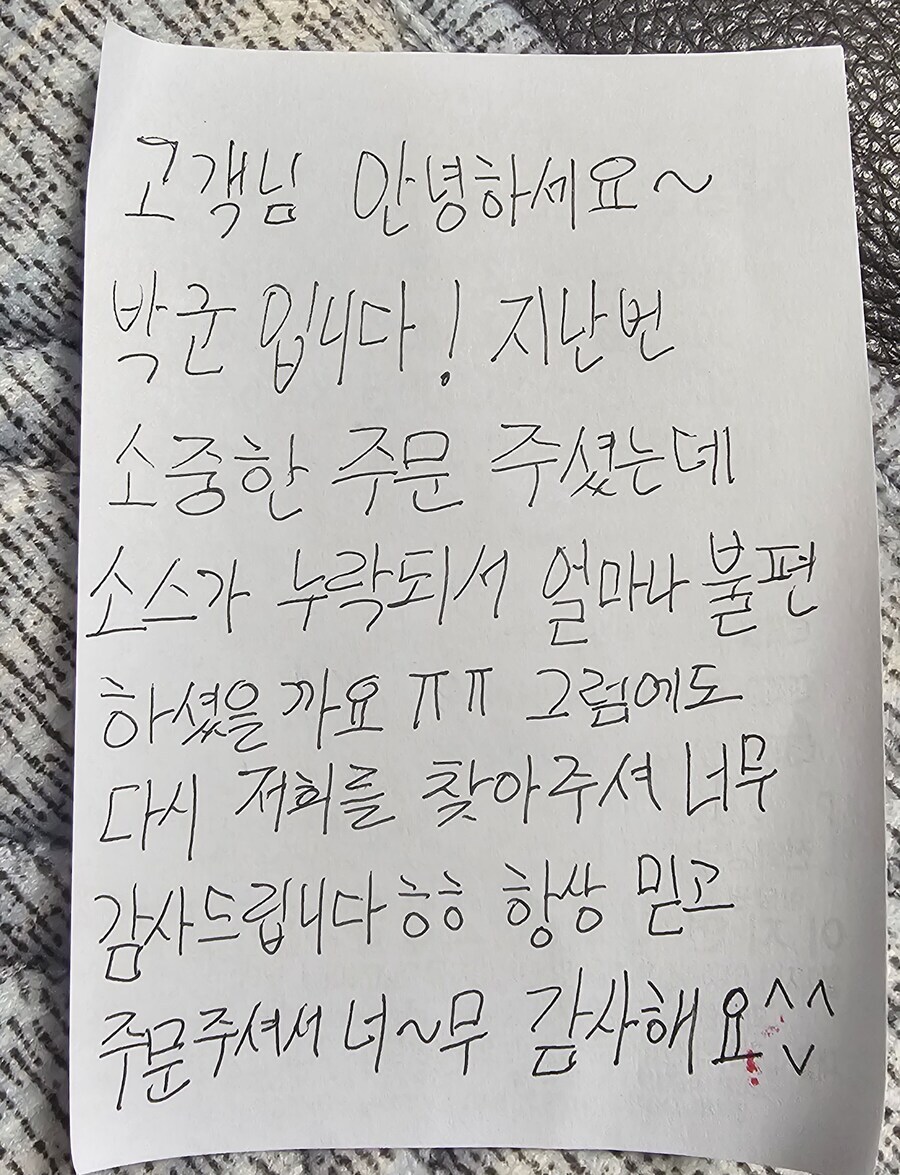 고객님 안녕하세요~
박군입니다! 지난번
소중한 주문 주셨는데
소스가 누락되서 얼마나 불편
하셨을까요 ㅠㅠ 그럼에도
다시 저희를 찾아주셔 너무
감사드립니다ㅎㅎ 항상 믿고
주문주셔서 너~무 감사해요^^